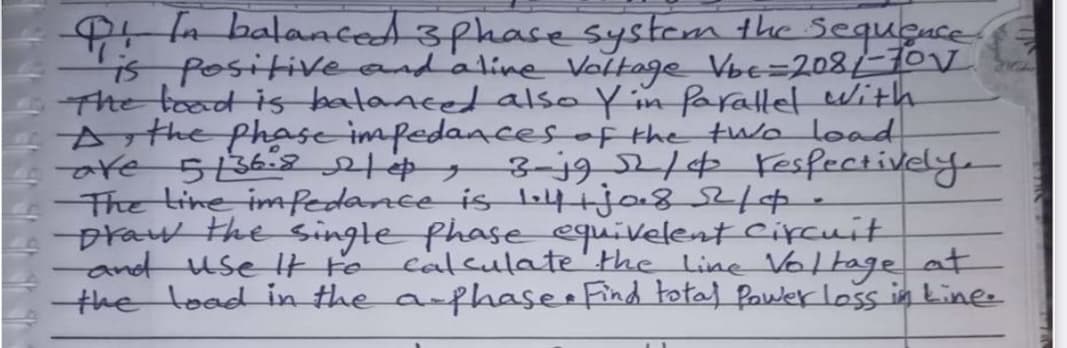 Q1: In balanced 3phase system the sequence
is positive and a line Voltage Vbc=208∠-70° V
The load is balanced also Y in Parallel with
Δ, the phase impedances of the two load
are 5∠36.8° Ω/ф, 3-j9 Ω/ф respectively.
The line impedance is 1.4+j0.8 Ω/ф.
Draw the single phase equivelent circuit
and use It to calculate the line Voltage at
the load in the a-phase. Find total Power loss in Line.